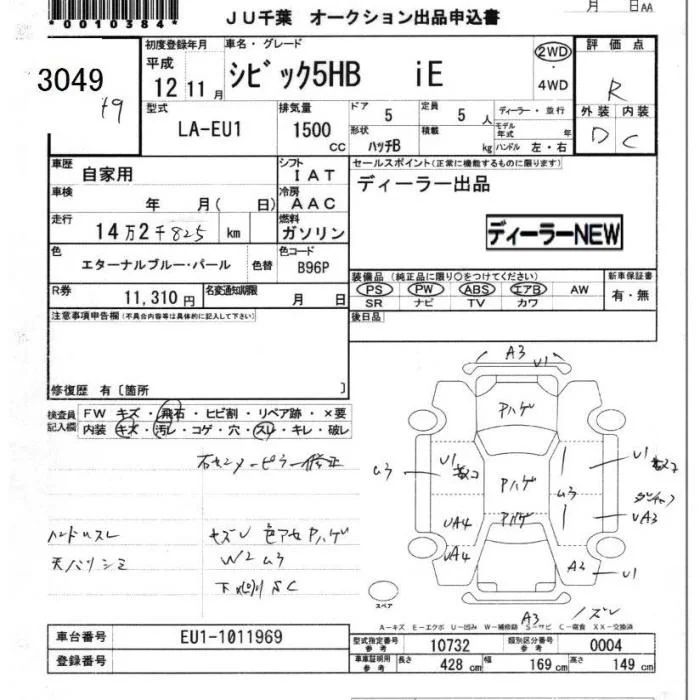 *0010384*
月 日AA
JU千葉 オークション出品申込書
3049
初度登録年月
平成
12 11月
車名・グレード
シビック5HB iE
2WD
・
4WD
評価点
R
外装 内装
D C
型式
LA-EU1
排気量
1500
CC
ドア
5
定員
5 人
形状
ハッチB
積載
kg
ディーラー・並行
モデル年式 年
ハンドル 左・右
車歴
自家用
シフト
IAT
セールスポイント(正常に機能するものに限ります)
ディーラー出品
車検
年 月( 日)
冷房
AAC
走行
14万2千825 km
燃料
ガソリン
ディーラーNEW
色
エターナルブルー・パール
色替
色コード
B96P
装備品(純正品に限り○をつけてください)
PS PW ABS エアB AW
SR ナビ TV カワ
新車保証書
有・無
R券
11,310円
名変通知期限
月 日
後日品
注意事項申告欄(不具合内容等は具体的に記入して下さい)
修復歴 有〔箇所 〕
検査員記入欄
FW キズ・飛石・ヒビ割・リペア跡・×要
内装 キズ・汚レ・コゲ・穴・スレ・キレ・破レ
A3
U1
Pハゲ
ム3
U1
Pハゲ
ム3
U1
UA4
Pハゲ
UA3
UA4
A3
U1
ハンドルスレ
天バリシミ
キズU 色アセ Pハゲ
W2 ム3
下回リSC
スペア
A3
ノズレ
A-キズ E-エクボ U-凹み W-補修跡 S-サビ C-腐食 XX-交換済
車台番号
EU1-1011969
登録番号
型式指定番号
参考
10732
類別区分番号
参考
0004
車庫証明用
参考
長さ
428 cm
幅
169 cm
高さ
149 cm